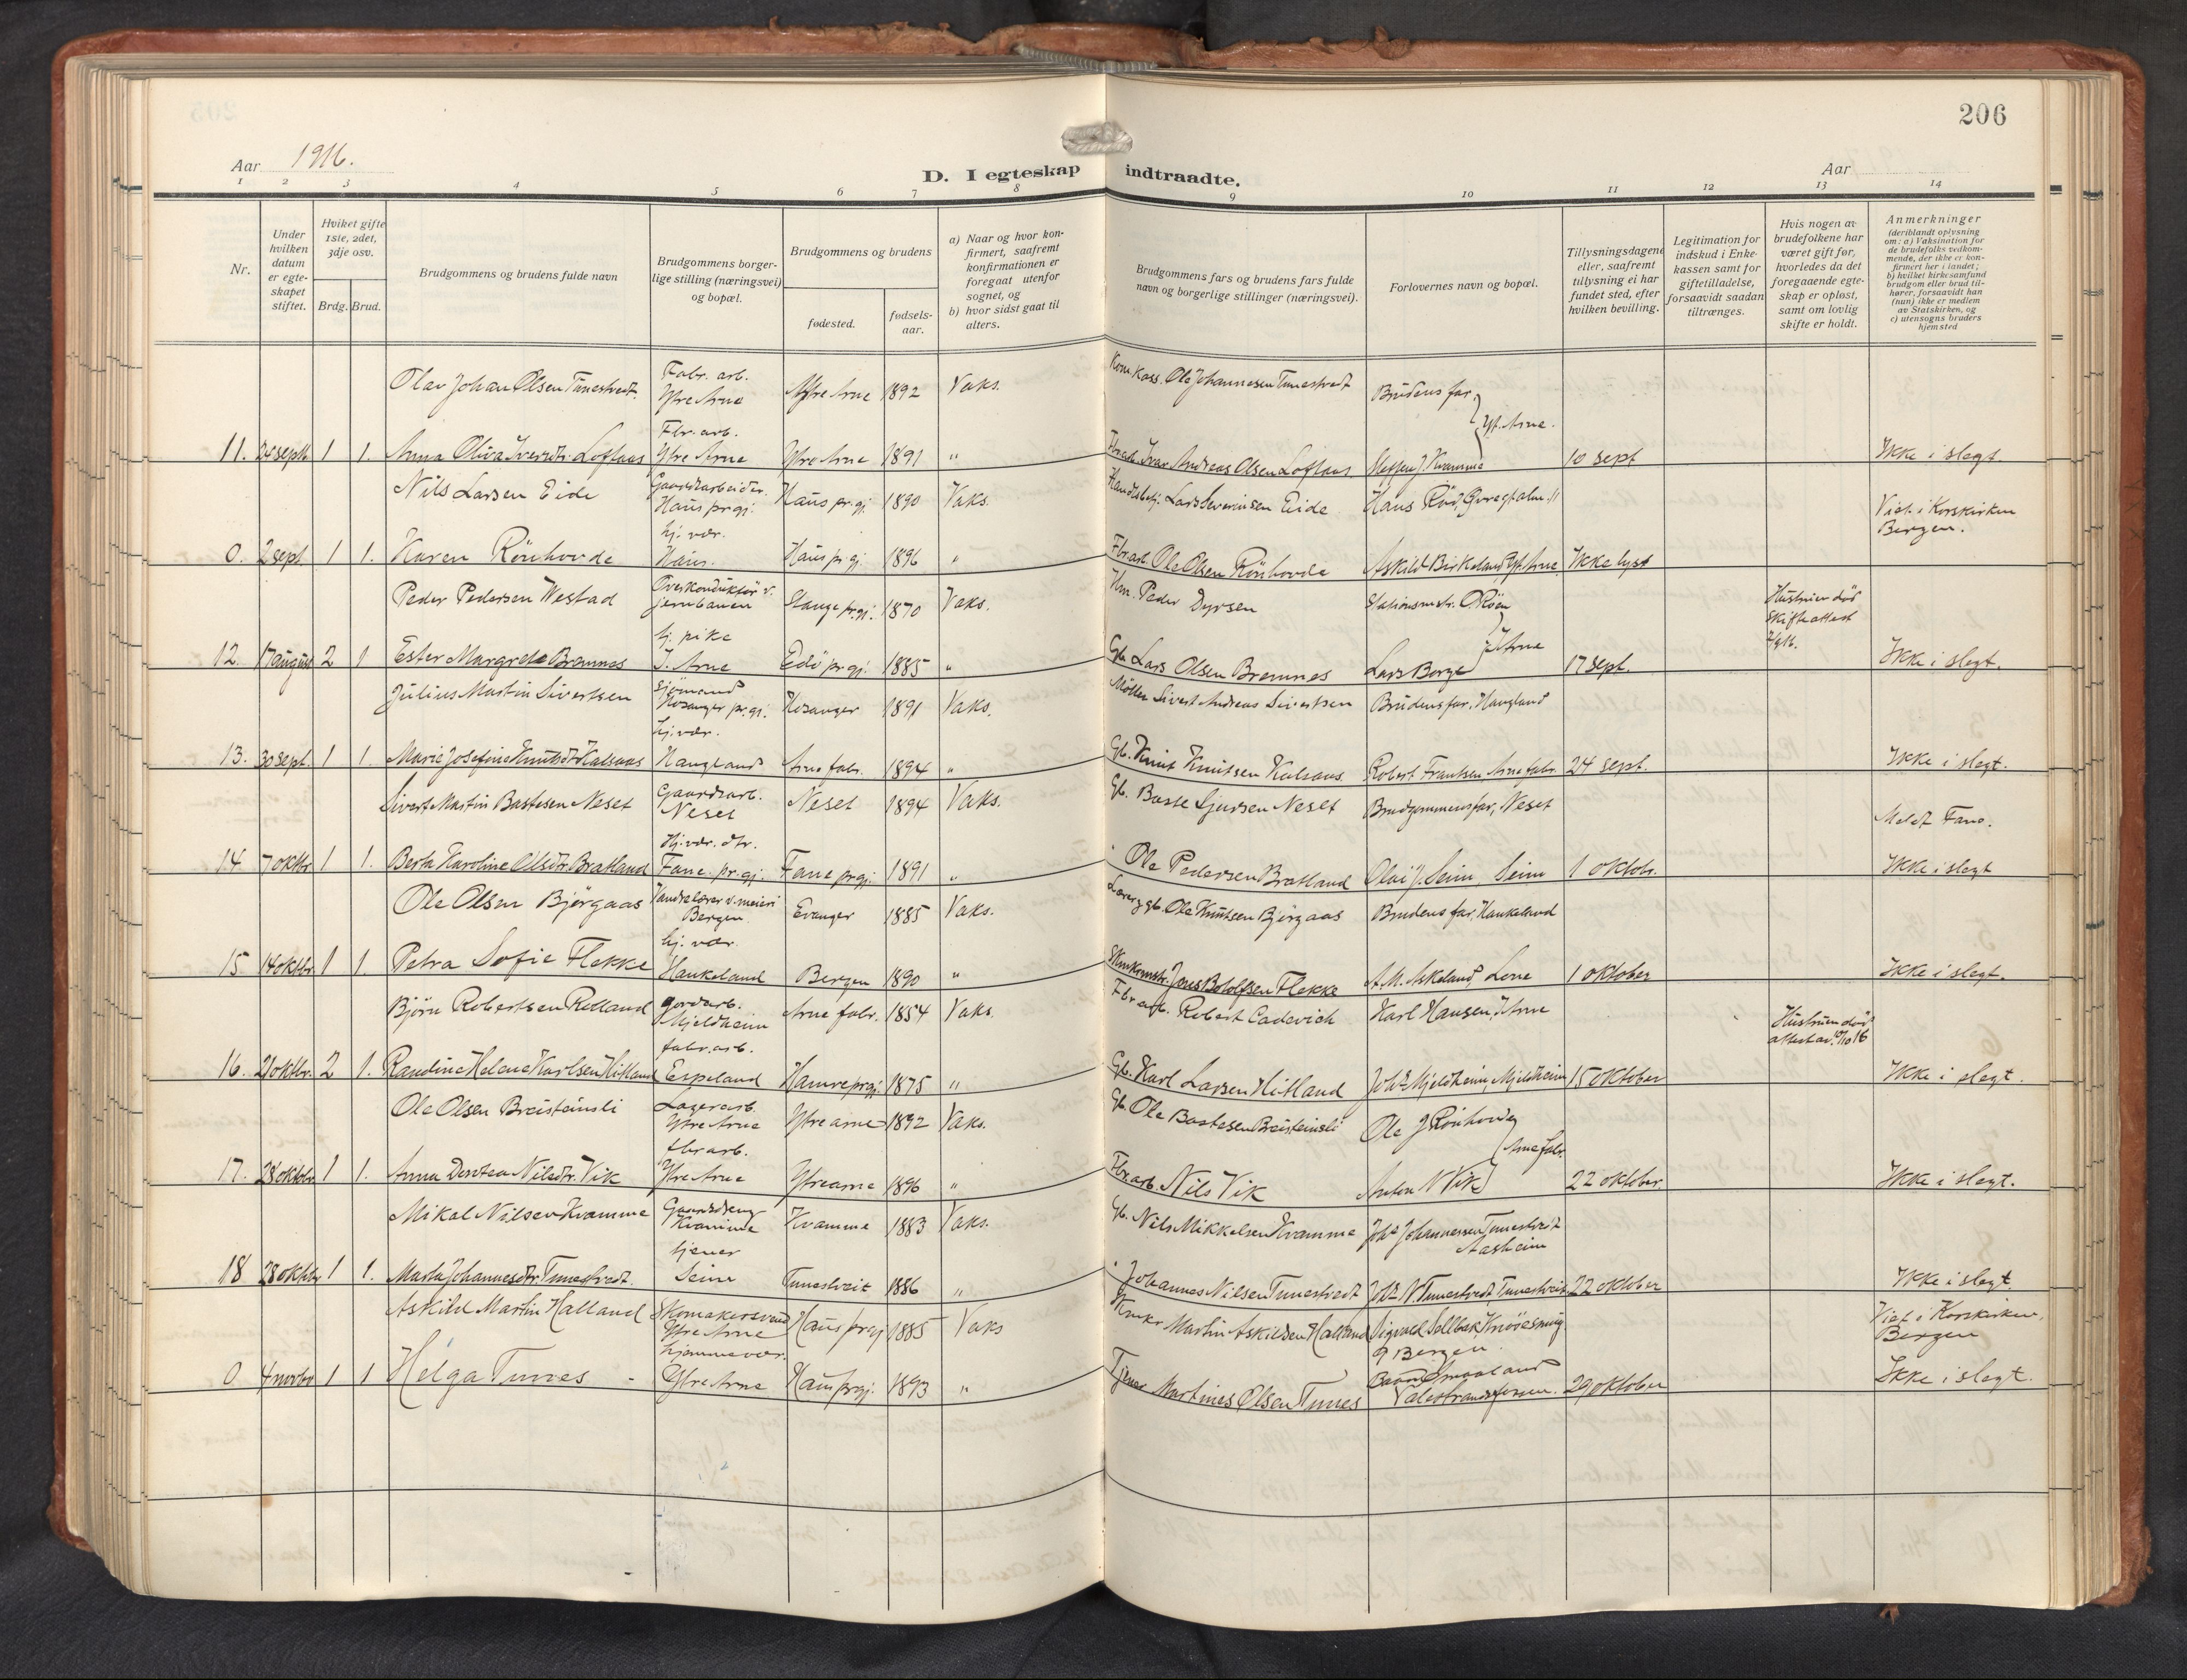 206
Aar 1916.
D. I egteskap indtraadte.
Aar
1 2 3 4 5 6 7 8 9 10 11 12 13 14
Nr.
Under hvilken datum er egteskapet stiftet.
Hviket gifte 1ste, 2det, 3dje osv.
Brdg. Brud.
Brudgommens og brudens fulde navn
Brudgommens borgerlige stilling (næringsvei) og bopæl.
Brudgommens og brudens
fødested.
fødsels-aar.
a) Naar og hvor konfirmert, saafremt konfirmationen er foregaat utenfor sognet, og
b) hvor sidst gaat til alters.
Brudgommens fars og brudens fars fulde navn og borgerlige stillinger (næringsvei).
Forlovernes navn og bopæl.
Tillysningsdagene eller, saafremt tillysning ei har fundet sted, efter hvilken bevilling.
Legitimation for indskud i Enkekassen samt for giftetilladelse, forsaavidt saadan tiltrænges.
Hvis nogen av brudefolkene har været gift før, hvorledes da det foregaaende egteskap er opløst, samt om lovlig skifte er holdt.
Anmerkninger (deriblandt oplysning om: a) Vaksination for de brudefolks vedkommende, der ikke er konfirmert her i landet; b) hvilket kirkesamfund brudgom eller brud tilhører, forsaavidt han (hun) ikke er medlem av Statskirken, og c) utensogns bruders hjemsted
Olav Johan Olsen Tunestvedt. Fabr. arb. Ytre Arne Ytre Arne 1892 Vaks. Kom.kass. Ole Johannesen Tunestvedt Brudens far,
Yt. Arne.
11. 24 sept. 1 1. Anna Oliva Iversdtr. Loftaas Fbr. arb. Ytre Arne Ytre Arne 1891 " Fbrarb. Ivar Andreas Olsen Loftaas Steffen J Kvamme 10 sept Ikke i slegt.
Nils Larsen Eide Gaardsarbeider. Haus prgj. Haus pr.gj. 1890 Vaks. Lars Severinsen Eide Hans Röd, Viet i Korskirken Bergen.
0. 2 sept. 1 1. Karen Rönhovde hj. vær. Haus. Haus pr.gj. 1896 " Fbrarb. Ole Olsen Rönhovde Askild Birkeland, Yt. Arne Ikke lyst
Peder Pedersen Westad Overkonduktör v. jernbanen Stange pr.gj. 1870 Vaks. Peder Dyrsen Stationsmstr. O Röen Hustruen död Skifteattest
Y. Arne
12. 17 august 2 1 Ester Margrete Bremnes hj. pike Y. Arne Edö pr.gj. 1885 " Gb. Lars Olsen Bremnes Lars Borge 17 sept. Ikke i slegt.
Julius Martin Sivertsen Sjömand Hosanger pr.gj. Hosanger 1891 Vaks. Möller Sivert Andreas Sivertsen Brudens far, Haugland
13. 30 sept. 1 1. Marie Josefine Knutsdt. Kalsaas hj. vær. Haugland Arne fabr. 1894 " Gb. Knut Knutsen Kalsaas Robert Frantsen Arne fabr. 24 sept. Ikke i slegt.
Sivert Martin Bastesen Neset Gaardsarb. Neset Neset 1894 Vaks. Gb. Baste Sjursen Neset Brudgommens far, Neset Meldt Fane.
14. 7 oktbr. 1 1. Berta Karoline Olsdtr. Bratland Hj. vær. dtr. Fane. pr.gj. Fane prgj. 1891 " Ole Pedersen Bratland Olai J. Seim, Seim 1 oktobr. Ikke i slegt
Ole Olsen Bjørgaas v. meieri Bergen Evanger 1885 Vaks. Ole Knutsen Bjørgaas Brudens far, Haukeland
15 14 oktbr 1 1. Petra Sofie Flekke hj. vær. Haukeland Bergen 1890 " Jens Botolfsen Flekke A. M. Askeland, Lone 1 oktober Ikke i slegt.
Björn Robertsen Redland gardarb. Mjeldheim Arne fabr. 1854 Vaks. Fbrarb. Robert Cadevich Karl Hansen, Y. Arne Hustruen död attest av 10/10 16
16. 21 oktbr. 2 1. Randine Helene Karlsen Hitland fabr. arb. Espeland Hamre prgj. 1875 " Gb. Karl Larsen Hitland Johs Mjeldheim, Mjeldheim 15 oktober Ikke i slegt.
Ole Olsen Breisteinsli Lagerarb. Ytre Arne Ytre arne 1892 Vaks. Gb. Ole Bastesen Breisteinsli Ole J Rönhovde
Arne fabr.
17. 28 oktobr 1 1. Anna Dorotea Nilsdtr. Vik fbr arb. Ytre Arne Ytre arne 1896 " Fbr. arb. Nils Vik Anton N Vik 22 oktober. Ikke i slegt.
Mikal Nilsen Kvamme Gaardsdreng Kvamme Kvamme 1883 Vaks. Gb. Nils Mikkelsen Kvamme Johs Johannessen Tunestveit Aasheim
18 28 oktbr 1 1. Marta Johannesdtr. Tunestvedt. tjener Seim Tunestveit 1886 " Johannes Nilsen Tunestvedt Johs N. Tunestvedt Tunestveit 22 oktober Ikke i slegt
Askild Martin Halland Skomakersvend Ytre Arne Haus prgj 1885 Vaks Martin Askildsen Halland Sigvald Sellbæk Bergen. Viet i Korskirken, Bergen
0. 4 novbr 1 1 Helga Tunes hjemmevær. Ytre Arne Haus prgj. 1893 " Tjener Martines Olsen Tunes Smaaland Valestrandsfossen. 29 oktober Ikke i slegt.